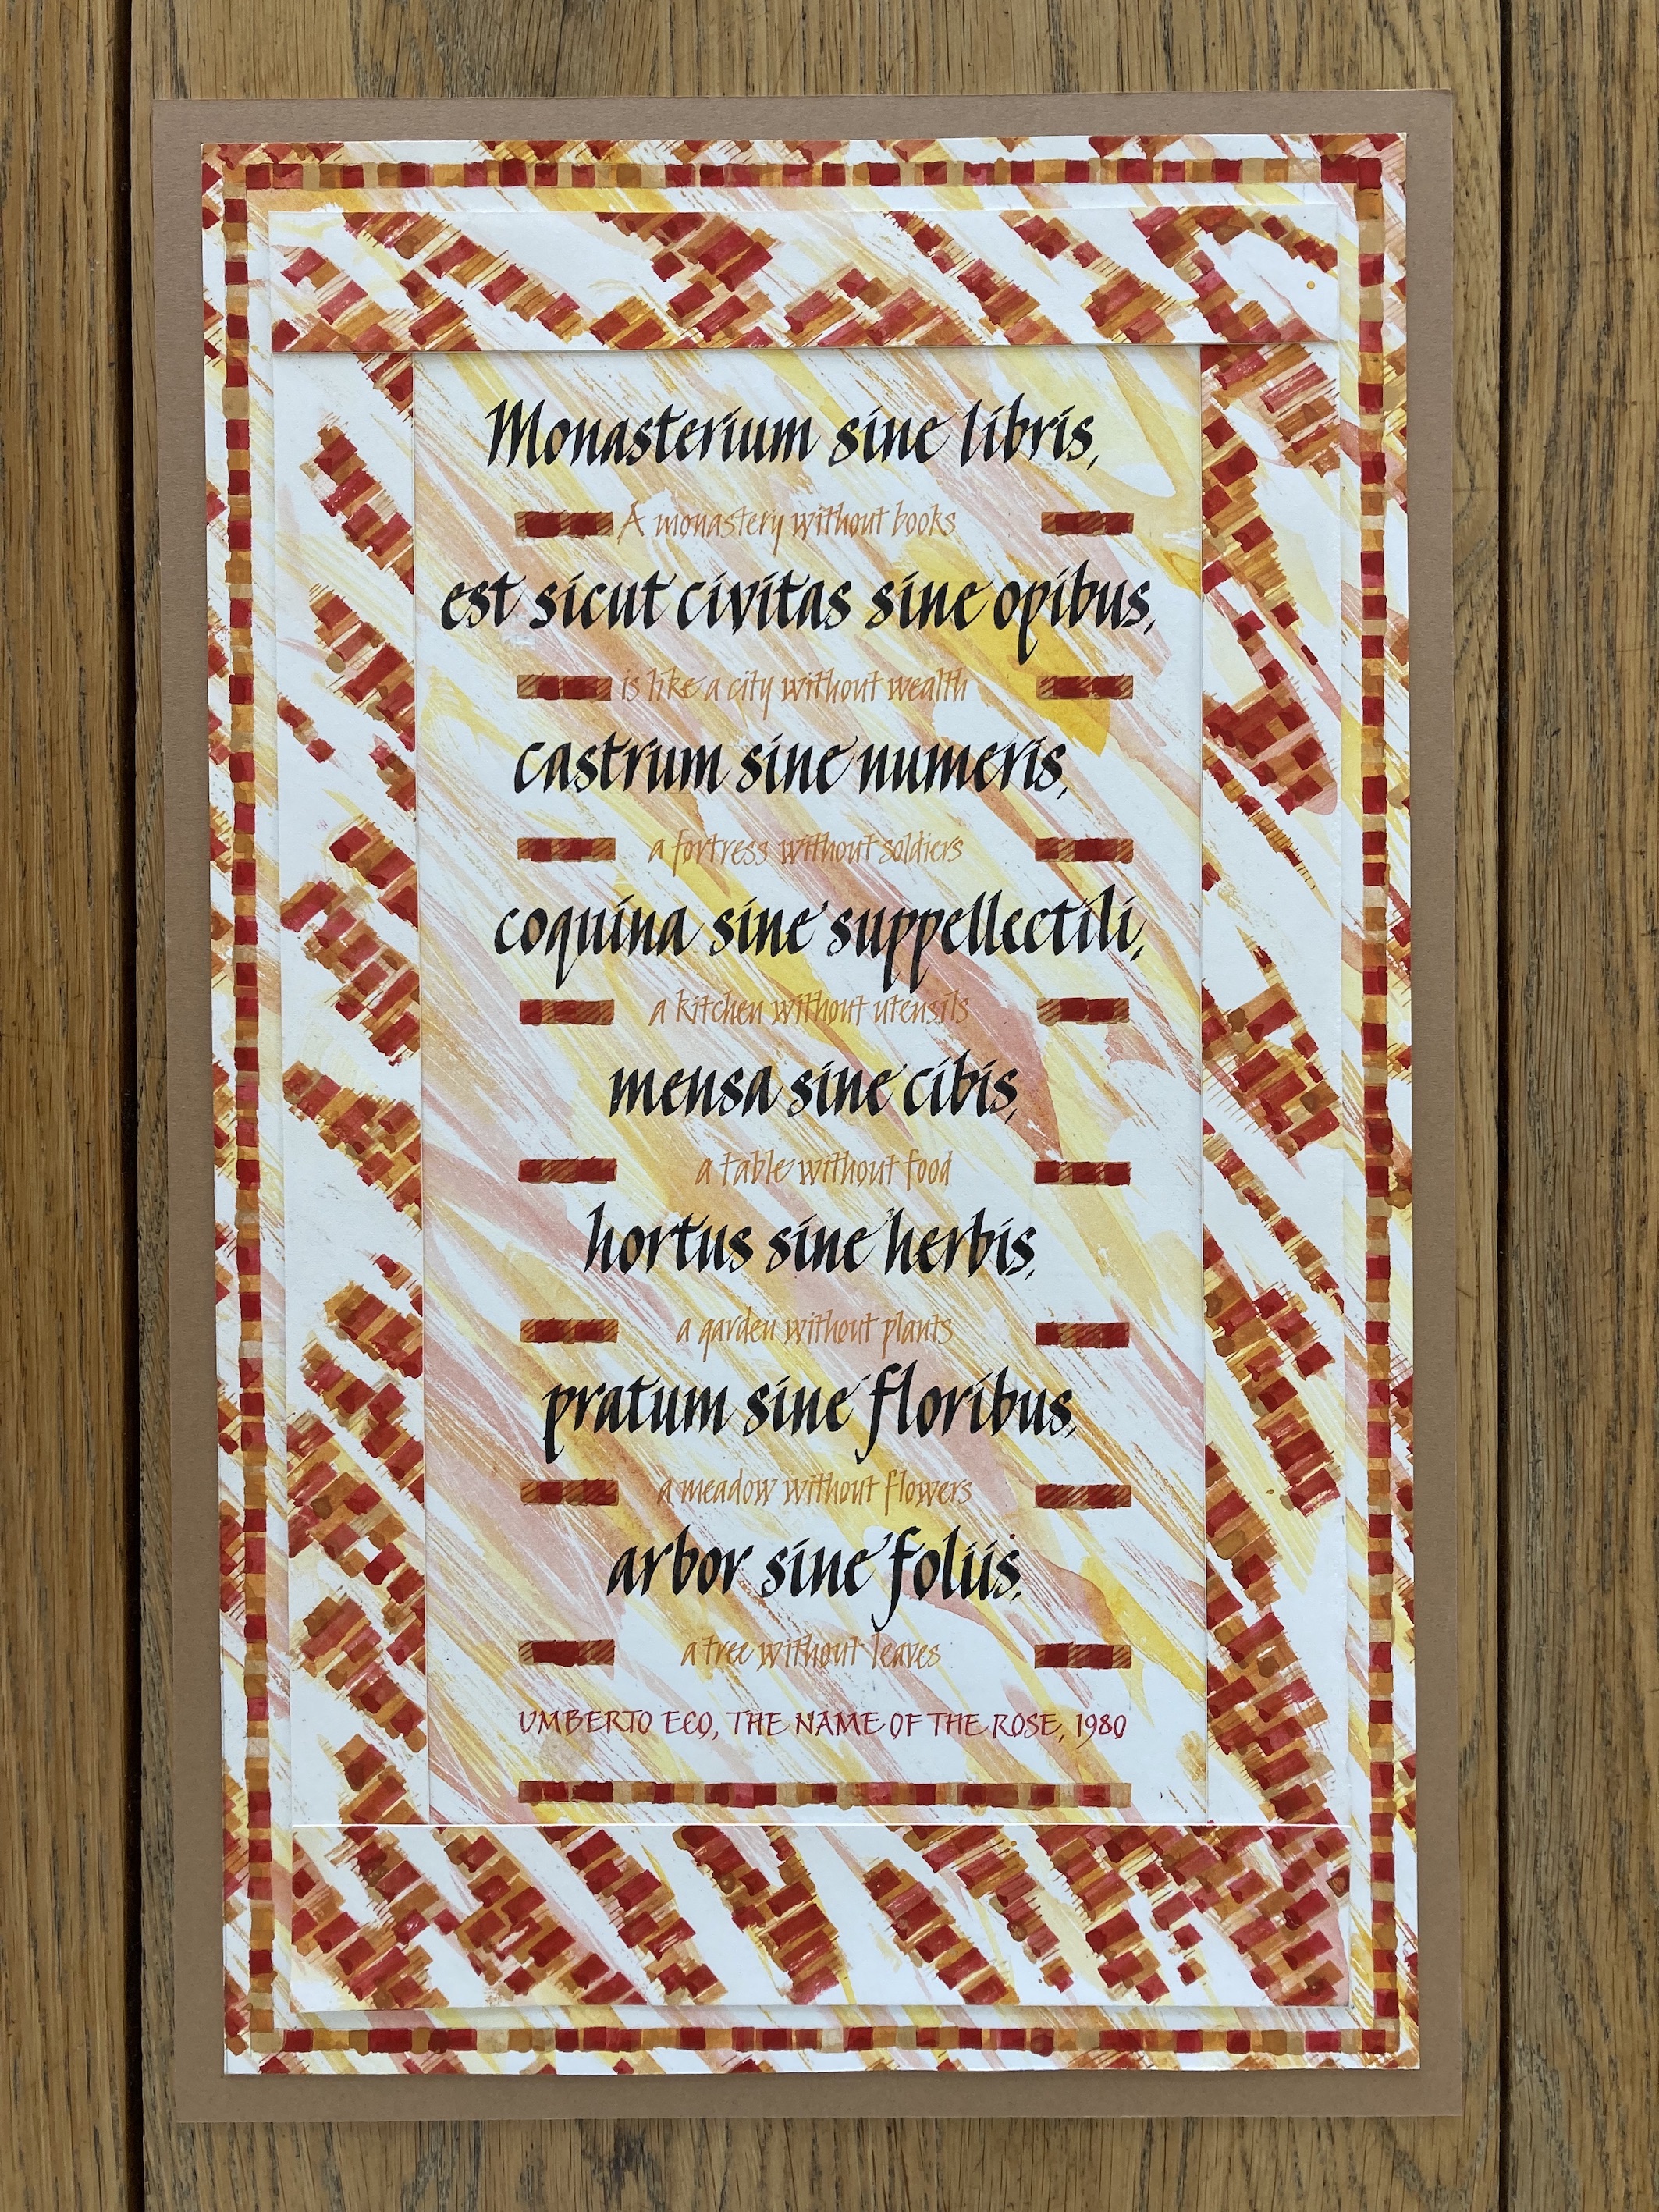 Monasterium sine libris,
A monastery without books
est sicut civitas sine opibus,
is like a city without wealth
castrum sine numeris,
a fortress without soldiers
coquina sine suppellectili,
a kitchen without utensils
mensa sine cibis,
a table without food
hortus sine herbis,
a garden without plants
pratum sine floribus,
a meadow without flowers
arbor sine foliis.
a tree without leaves
UMBERTO ECO, THE NAME OF THE ROSE, 1980